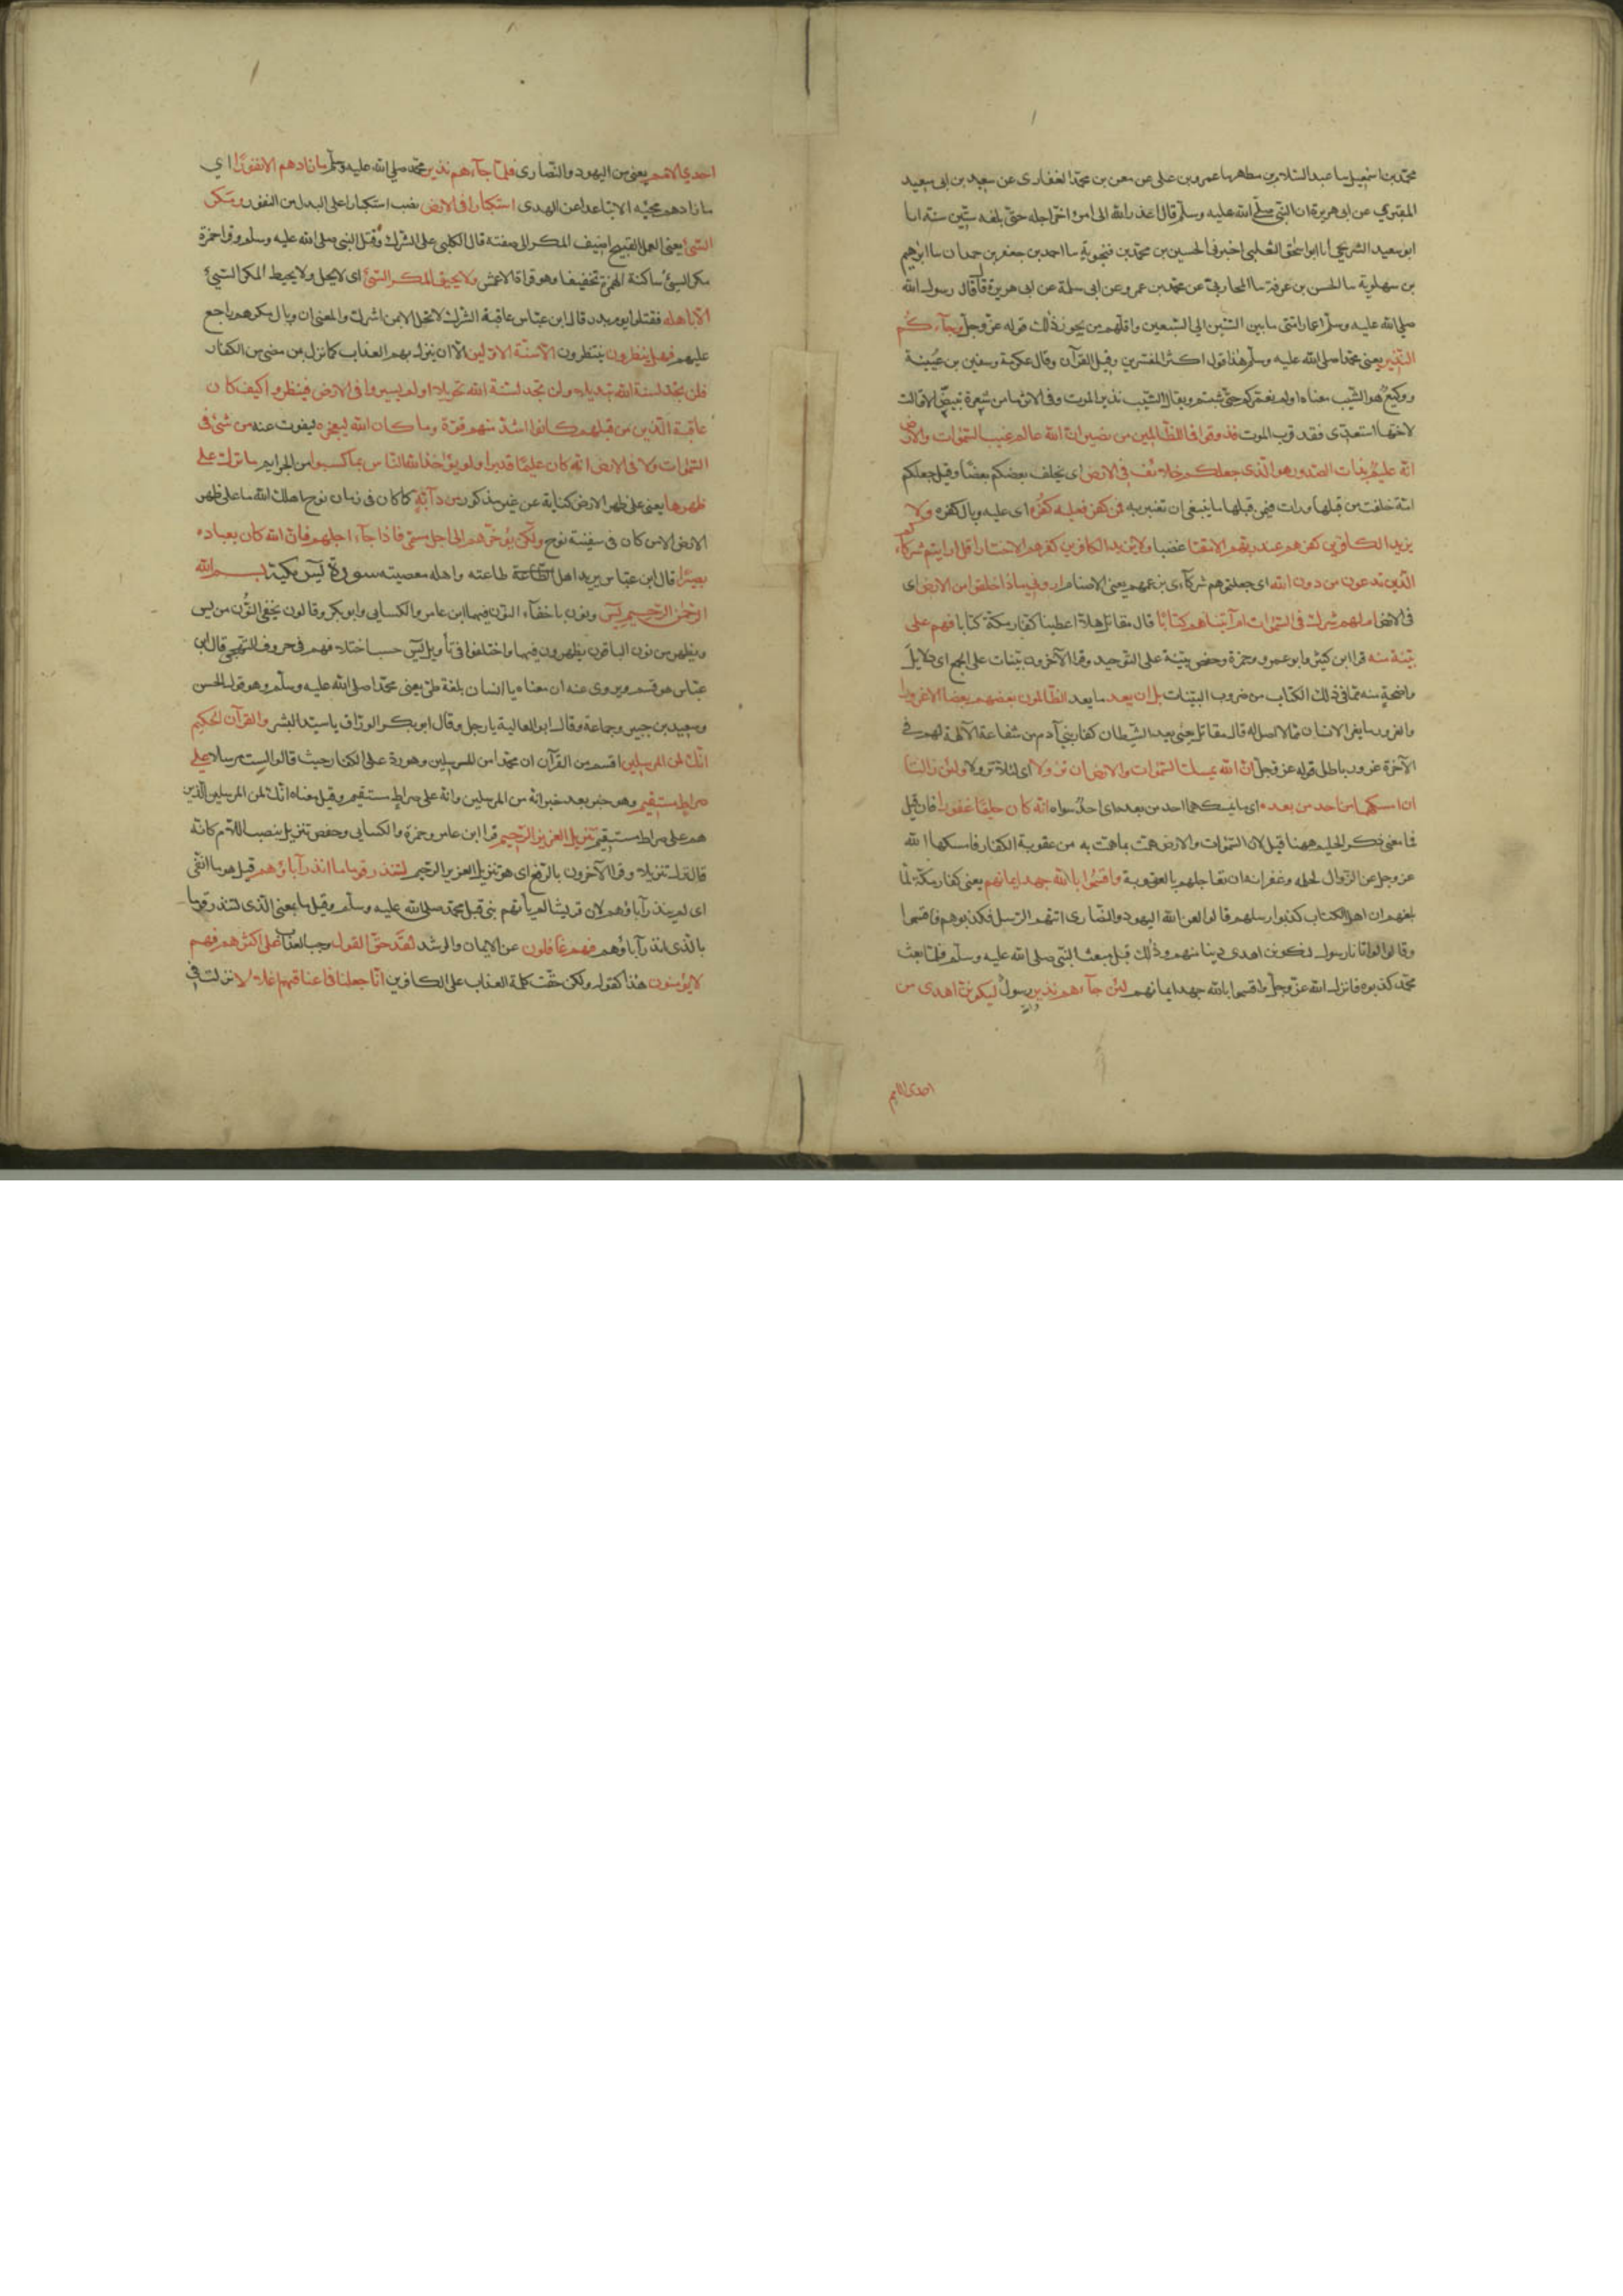 محمد بن اسمعيل نا عبد السلام بن مطهر نا عمرو بن علي عن معن بن محمد الغفاري عن سعيد بن ابي سعيد
المقبري عن ابي هريرة ان النبي صلى الله عليه وسلم قال اعذر الله الى امرئ اخر اجله حتى بلغه ستين سنة انا
ابو سعيد الشريحي انا ابو اسحق الثعلبي اخبرني الحسين بن محمد بن فنجوية نا احمد بن جعفر بن حمدان نا ابراهيم
بن سهلوية نا الحسن بن عرفة نا المحاربي عن محمد بن عمرو عن ابي سلمة عن ابي هريرة قال قال رسول الله
صلى الله عليه وسلم اعمار امتي ما بين الستين الى السبعين واقلهم من يجوز ذلك قوله عز وجل وجآءكم
النذير يعني محمدا صلى الله عليه وسلم هذا قول اكثر المفسرين وقيل القرآن وقال عكرمة وسفين بن عيينة
ووكيع هو الشيب معناه اولم نعمركم حتى شبتم ويقال الشيب نذير الموت وفي الاثر ما من شعرة تبيض الا قالت
لاختها استعدي فقد قرب الموت فذوقوا فما للظالمين من نصير ان الله عالم غيب السموات والارض
انه عليم بذات الصدور هو الذي جعلكم خلائف في الارض اى يخلف بعضكم بعضا وقيل جعلكم
امة خلفت من قبلها ورات فيمن قبلها ما ينبغي ان تعتبر به فمن كفر فعليه كفره اى عليه وبال كفره ولا
يزيد الكافرين كفرهم عند ربهم الا مقتا غضبا ولا يزيد الكافرين كفرهم الا خسارا قل ارايتم شركآءكم
الذين تدعون من دون الله اى جعلتموهم شركآءي بزعمهم يعني الاصنام اروني ماذا خلقوا من الارض اى
في الارض ام لهم شرك في السموات ام آتيناهم كتابا قال مقاتل هل اعطينا كفار مكة كتابا فهم على
بينة منه قرا ابن كثير وابو عمرو وحمزة وحفص بينة على التوحيد وقرا الآخرون بينات على الجمع اى دلايل
واضحة منه مما في ذلك الكتاب من ضروب البينات بل ان يعد ما يعد الظالمون بعضهم بعضا الا غرورا
والغرور ما يغر الانسان مما لا اصل له قال مقاتل يعني ما يعد الشيطان كفار بني آدم من شفاعة الآلهة لهم في
الآخرة غرور باطل قوله عز وجل ان الله يمسك السموات والارض ان تزولا اى لئلا تزولا ولئن زالتا
ان امسكهما من احد من بعده اى ما يمسكهما احد من بعده اى احد سواه انه كان حليما غفورا فان قيل
فما معنى ذكر الحليم ههنا قيل لان السموات والارض همت بما همت به من عقوبة الكفار فامسكهما الله
عز وجل عن الزوال لحلمه وغفرانه ان تعاجلهم بالعقوبة واقسموا بالله جهد ايمانهم يعني كفار مكة لما
بلغهم ان اهل الكتاب كذبوا رسلهم قالوا لعن الله اليهود والنصارى اتتهم الرسل فكذبوهم فاقسموا
وقالوا لو اتانا رسول لنكونن اهدى دينا منهم وذلك قبل مبعث النبي صلى الله عليه وسلم فلما بعث
محمد كذبوه فانزل الله عز وجل واقسموا بالله جهد ايمانهم لئن جآءهم نذير رسول ليكونن اهدى من
احدى الامم
احدي الامم يعني من اليهود والنصارى فلما جآءهم نذير محمد صلى الله عليه وسلم ما زادهم الا نفورا اي
ما زادهم مجيئه الا تباعدا عن الهدى استكبارا في الارض نصب استكبارا على البدل من النفور ومكر
السيئ يعني العمل القبيح اضيف المكر الى صفته قال الكلبي هو الشرك وقتل النبي صلى الله عليه وسلم وقرا حمزة
مكر السيئ ساكنة الهمزة تخفيفا وهو قراة الاعمش ولا يحيق المكر السيئ اى لا يحل ولا يحيط المكر السيئ
الا باهله فقتلوا يوم بدر قال ابن عباس عاقبة الشرك لا تحل الا بمن اشرك والمعنى ان وبال مكرهم راجع
عليهم فهل ينظرون ينتظرون الا سنة الاولين الا ان ينزل بهم العذاب كما نزل بمن مضى من الكفار
فلن تجد لسنة الله تبديلا ولن تجد لسنة الله تحويلا اولم يسيروا في الارض فينظروا كيف كان
عاقبة الذين من قبلهم كانوا اشد منهم قوة وما كان الله ليعجزه ليفوت عنه من شئ في
السموات ولا في الارض انه كان عليما قديرا ولو يؤاخذ الله الناس بما كسبوا من الجرايم ما ترك على
ظهرها يعني على ظهر الارض كناية عن غير مذكور من دآبة كما كان في زمان نوح اهلك الله ما على ظهر
الارض الا من كان في سفينة نوح ولكن يؤخرهم الى اجل مسمى فاذا جآء اجلهم فان الله كان بعباده
بصيرا قال ابن عباس يريد اهل طاعته واهل معصيته سورة يس مكية بسم الله
الرحمن الرحيم يس ونون باخفآء النون فيهما ابن عامر والكسايى وابو بكر وقالون يخفي النون من يس
ويظهر من نون الباقون يظهرون فيهما واختلفوا في تأويل يس حسب اختلافهم في حروف التهجي قال ابن
عباس هو قسم ويروى عنه ان معناه يا انسان بلغة طى يعني محمدا صلى الله عليه وسلم وهو قول الحسن
وسعيد بن جبير وجماعة وقال ابو العالية يا رجل وقال ابو بكر الوراق يا سيد البشر والقرآن الحكيم
انك لمن المرسلين اقسم بن القرآن ان محمدا من المرسلين وهو رد على الكفار حيث قالوا لست مرسلا على
صراط مستقيم وهو خبر بعد خبر انه من المرسلين وانه على صراط مستقيم وقيل معناه انك لمن المرسلين الذين
هم على صراط مستقيم تنزيل العزيز الرحيم قرا ابن عامر وحمزة والكسايى وحفص تنزيل بنصب اللام كانه
قال نزل تنزيلا وقرا الآخرون بالرفع اى هو تنزيل العزيز الرحيم لتنذر قوما ما انذر آباؤهم قيل هو ما النفى
اى لم ينذر آباؤهم لان قريشا لم يأتهم نبي قبل محمد صلى الله عليه وسلم وقيل ما بمعنى الذى لتنذر قوما
بالذى انذر آباؤهم فهم غافلون عن الايمان والرشد لقد حق القول وجب العذاب على اكثرهم فهم
لا يؤمنون هذا كقوله ولكن حقت كلمة العذاب على الكافرين انا جعلنا في اعناقهم اغلالا نزلت في